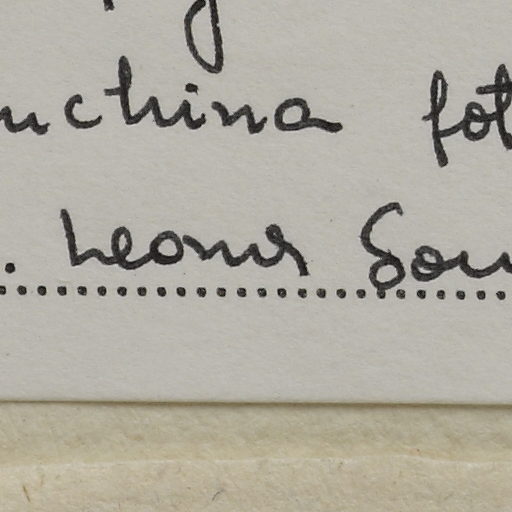 uchina fot
. Leonor Sou